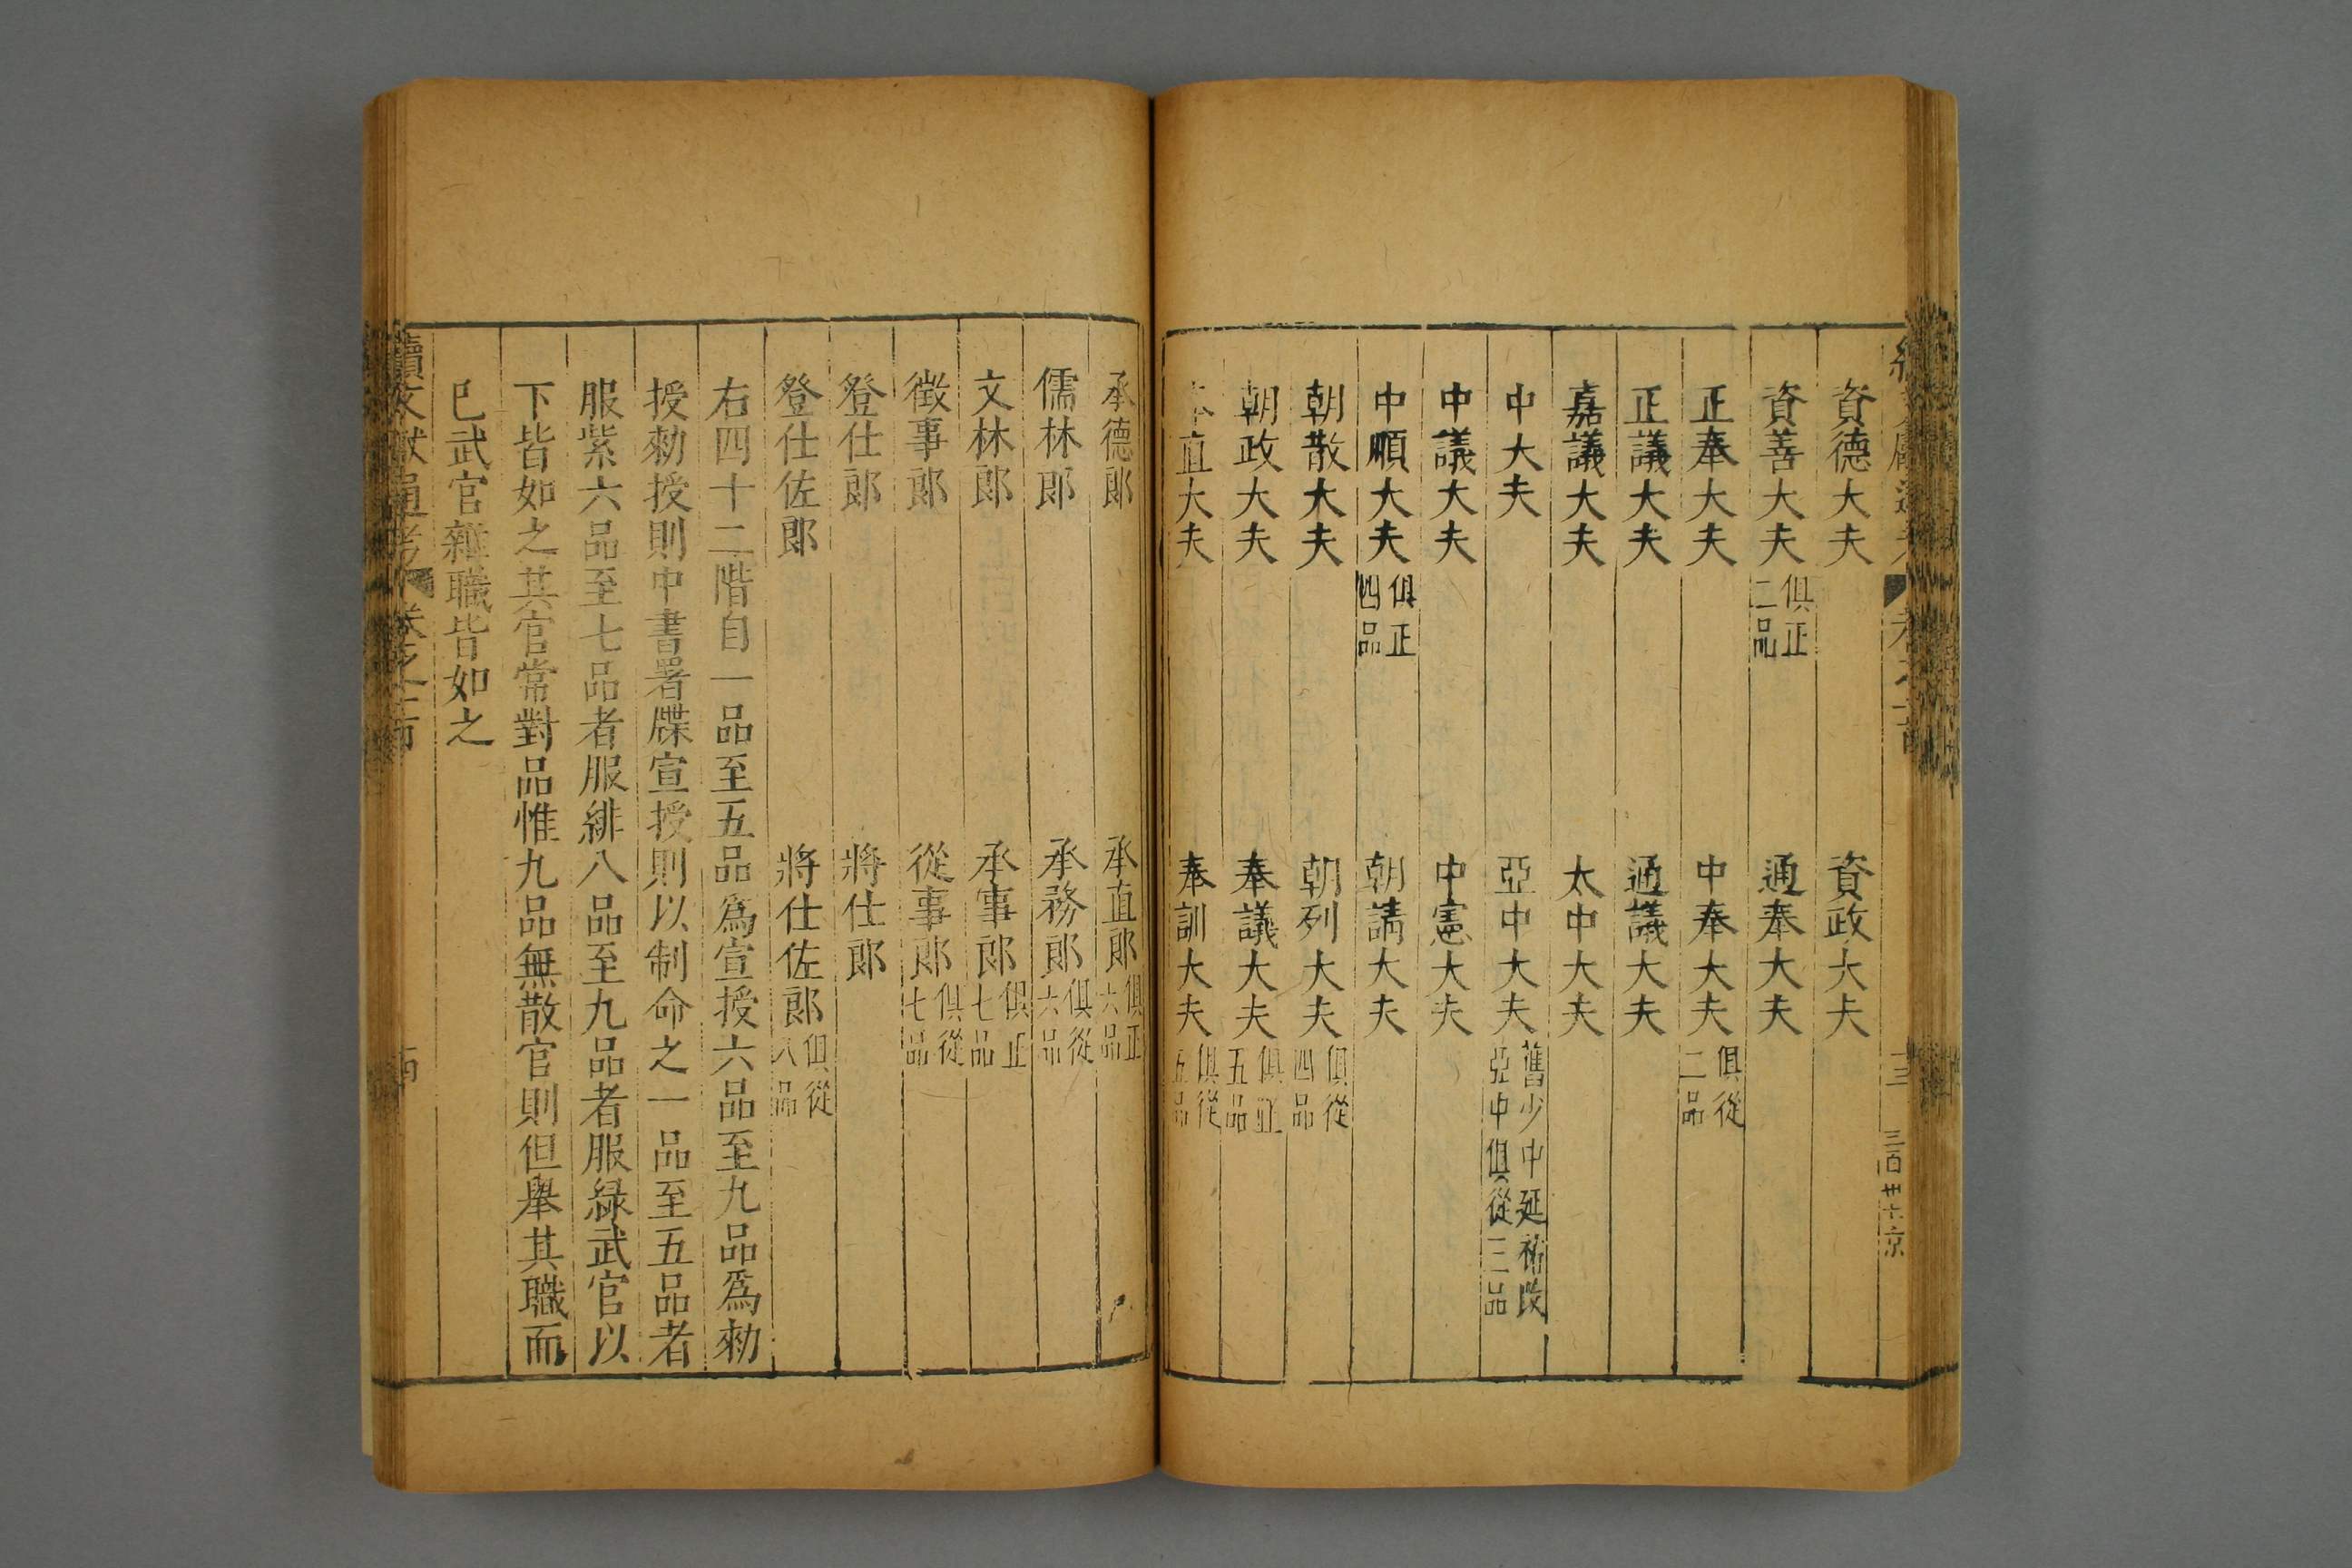 資德大夫 資政大夫
資善大夫 俱正二品 通奉大夫
正奉大夫 中奉大夫 俱從二品
正議大夫 通議大夫
嘉議大夫 太中大夫
中大夫 亞中大夫 舊少中延祐改亞中俱從三品
中議大夫 中憲大夫
中順大夫 俱正四品 朝請大夫
朝散大夫 朝列大夫 俱從四品
朝政大夫 奉議大夫 俱正五品
直大夫 奉訓大夫 俱從五品
承德郎 承直郎 俱正六品
儒林郎 承務郎 俱從六品
文林郎 承事郎 俱正七品
徵事郎 從事郎 俱從七品
登仕郎 將仕郎
登仕佐郎 將仕佐郎 俱從八品
右四十二階自一品至五品爲宣授六品至九品爲勑
授勑授則中書署牒宣授則以制命之一品至五品者
服紫六品至七品者服緋八品至九品者服綠武官以
下皆如之其官常對品惟九品無散官則但舉其職而
已武官雜職皆如之
續文獻通考 卷之